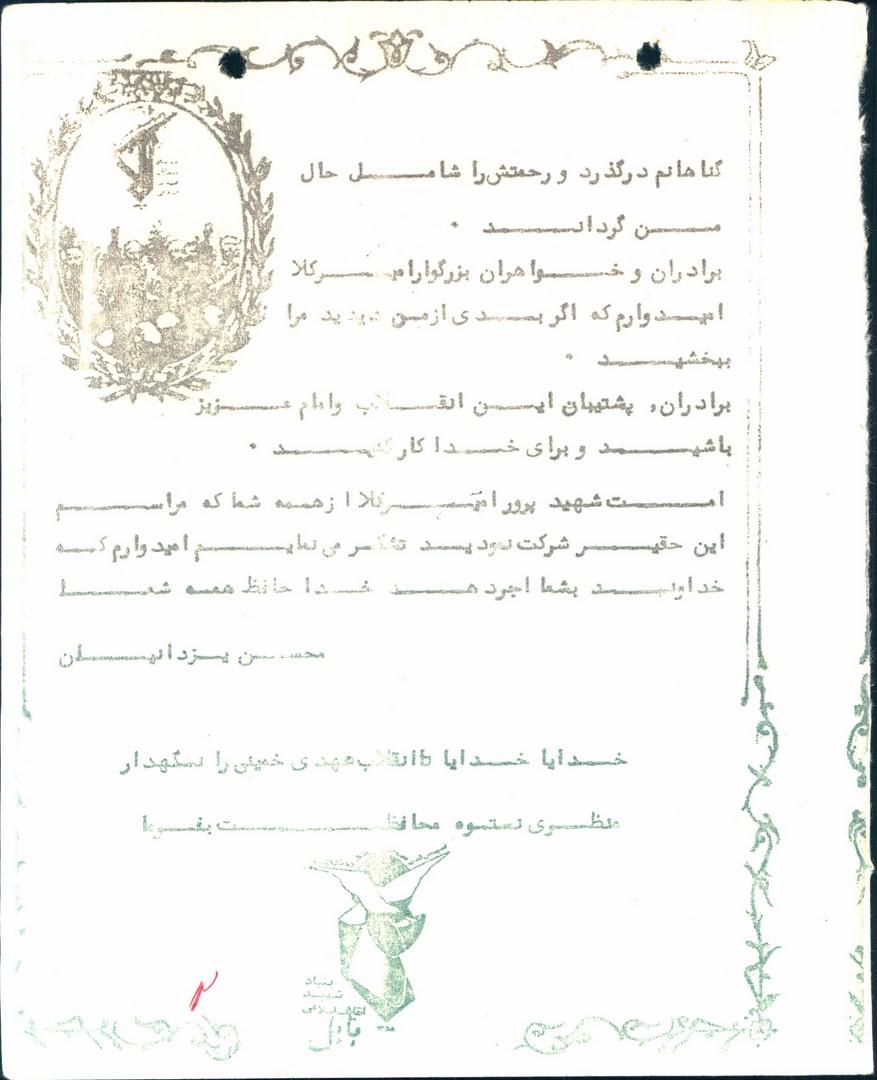 گناهانم درگذرد و رحمتش را شامل حال
من گرداند .
برادران و خواهران بزرگوار امیرکلا
امیدوارم که اگر بدی از من دیدید مرا
ببخشید .
برادران، پشتیبان این انقلاب و امام عزیز
باشید و برای خدا کار کنید .
امت شهید پرور امیرکلا از همه شما که مراسم
این حقیر شرکت نمودید تشکر می نمایم امیدوارم که
خداوند بشما اجر دهد خدا حافظ همه شما
محسن یزدانیان
خدایا خدایا تا انقلاب مهدی خمینی را نگهدار
منتظری نستوه محافظت بفرما
بنیاد
شهید
انقلاب اسلامی
بابل
۲